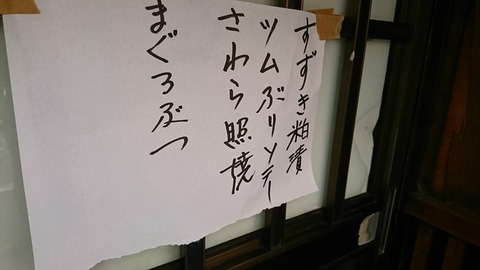 すずき粕漬
ツムぶりソテー
さわら照焼
まぐろぶつ